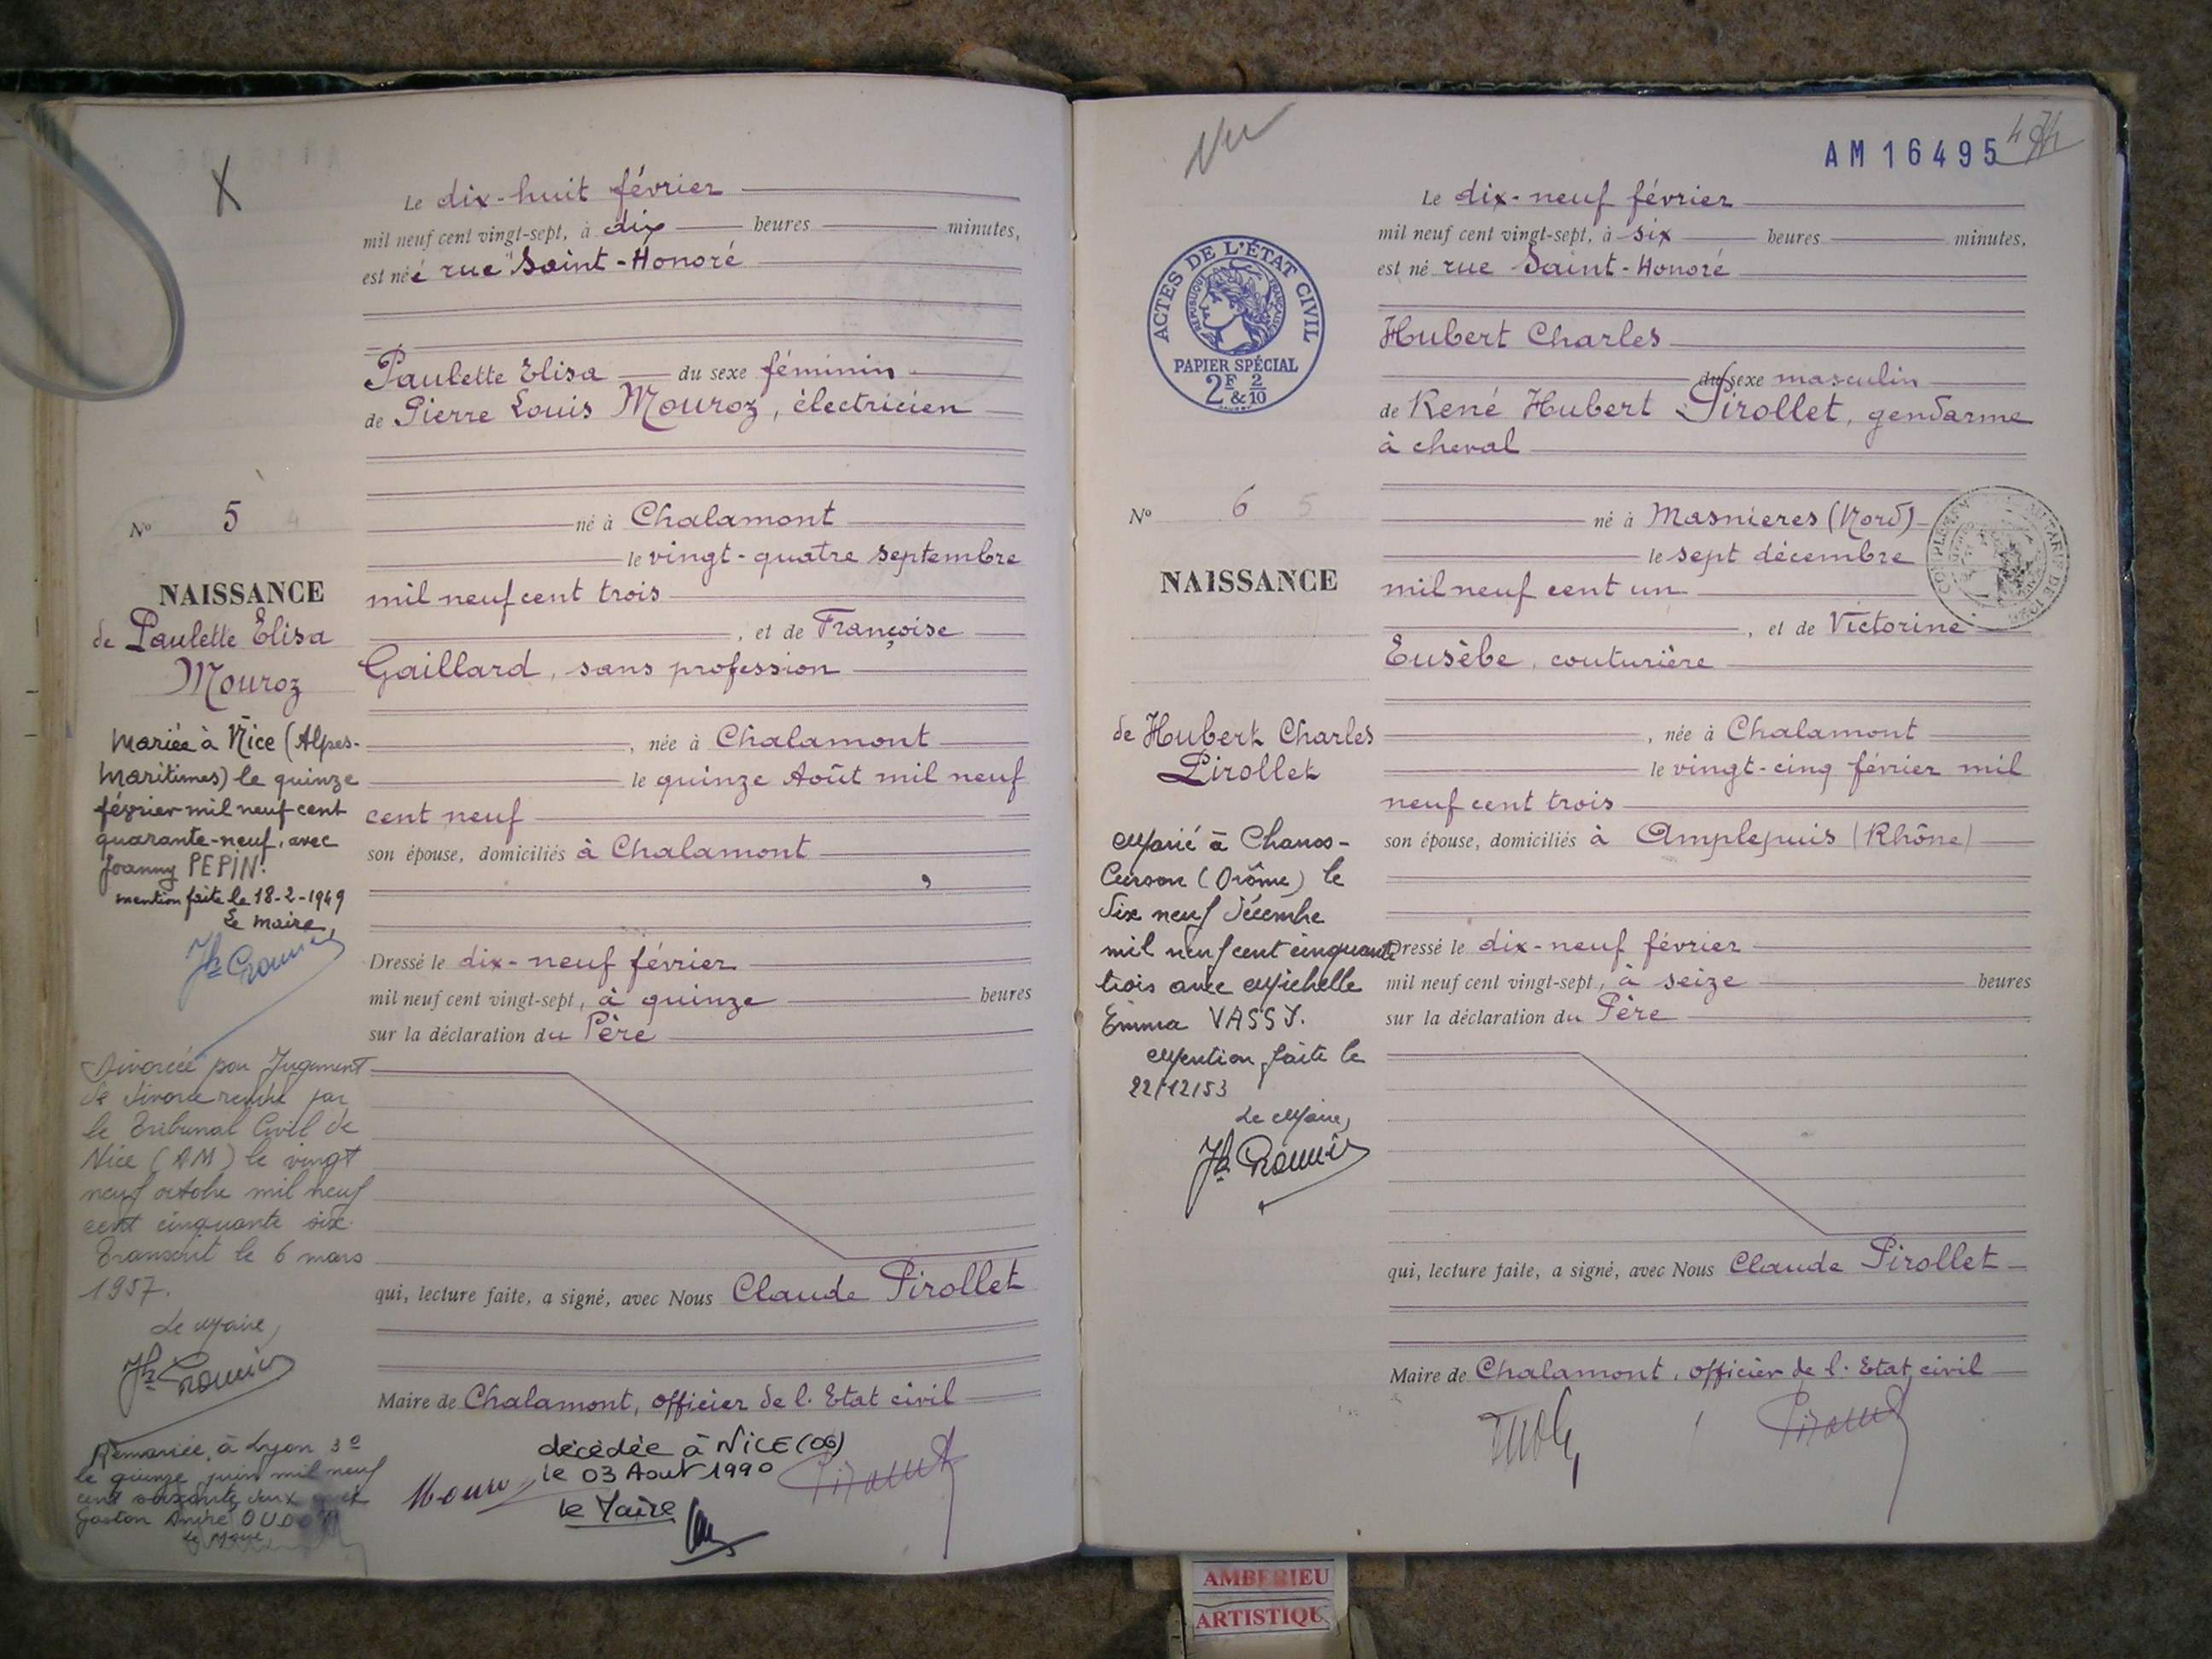 X
Le dix-huit février
mil neuf cent vingt-sept, à dix heures minutes,
est née rue Saint-Honoré
Paulette Elisa du sexe féminin
de Pierre Louis Mouroz, électricien
né à Chalamont
le vingt-quatre septembre
mil neuf cent trois
, et de Françoise
Gaillard, sans profession
, née à Chalamont
le quinze Août mil neuf
cent neuf
son épouse, domiciliés à Chalamont
Dressé le dix-neuf février
mil neuf cent vingt-sept, à quinze heures
sur la déclaration du Père
qui, lecture faite, a signé, avec Nous Claude Pirollet
Maire de Chalamont, officier de l'Etat civil
décèdée à NiCE (06)
le 03 Aout 1990
le Maire
Nº 5 4
NAISSANCE
de Paulette Elisa
Mouroz
Mariée à Nice (Alpes-
Maritimes) le quinze
février mil neuf cent
quarante-neuf, avec
Joanny PEPIN.
mention faite le 18-2-1949
Le maire,
Divorcée par Jugement
de divorce rendu par
le Tribunal Civil de
Nice (AM) le vingt
neuf octobre mil neuf
cent cinquante six.
Transcrit le 6 mars
1957.
Le Maire,
Remariée à Lyon 3e
le quinze juin mil neuf
cent soixante deux
Gaston André
Le Maire
Vu
AM16495
Le dix-neuf février
mil neuf cent vingt-sept, à six heures minutes,
est né rue Saint-Honoré
Hubert Charles
du sexe masculin
de René Hubert Pirollet, gendarme
à cheval
né à Masnieres (Nord)
le sept décembre
mil neuf cent un
, et de Victorine
Eusèbe, couturière
, née à Chalamont
le vingt-cinq février mil
neuf cent trois
son épouse, domiciliés à Amplepuis (Rhône)
Dressé le dix-neuf février
mil neuf cent vingt-sept, à seize heures
sur la déclaration du Père
qui, lecture faite, a signé, avec Nous Claude Pirollet
Maire de Chalamont, officier de l'Etat civil
ACTES DE L'ÉTAT CIVIL
RÉPUBLIQUE FRANÇAISE
PAPIER SPÉCIAL
2F & 2/10
Nº 6 5
NAISSANCE
de Hubert Charles
Pirollet
Marié à Chanos-
Curson (Drôme) le
dix neuf décembre
mil neuf cent cinquante
trois avec Michelle
Emma VASSY.
Mention faite le
22/12/53
Le Maire,
AMBERIEU
ARTISTIQU